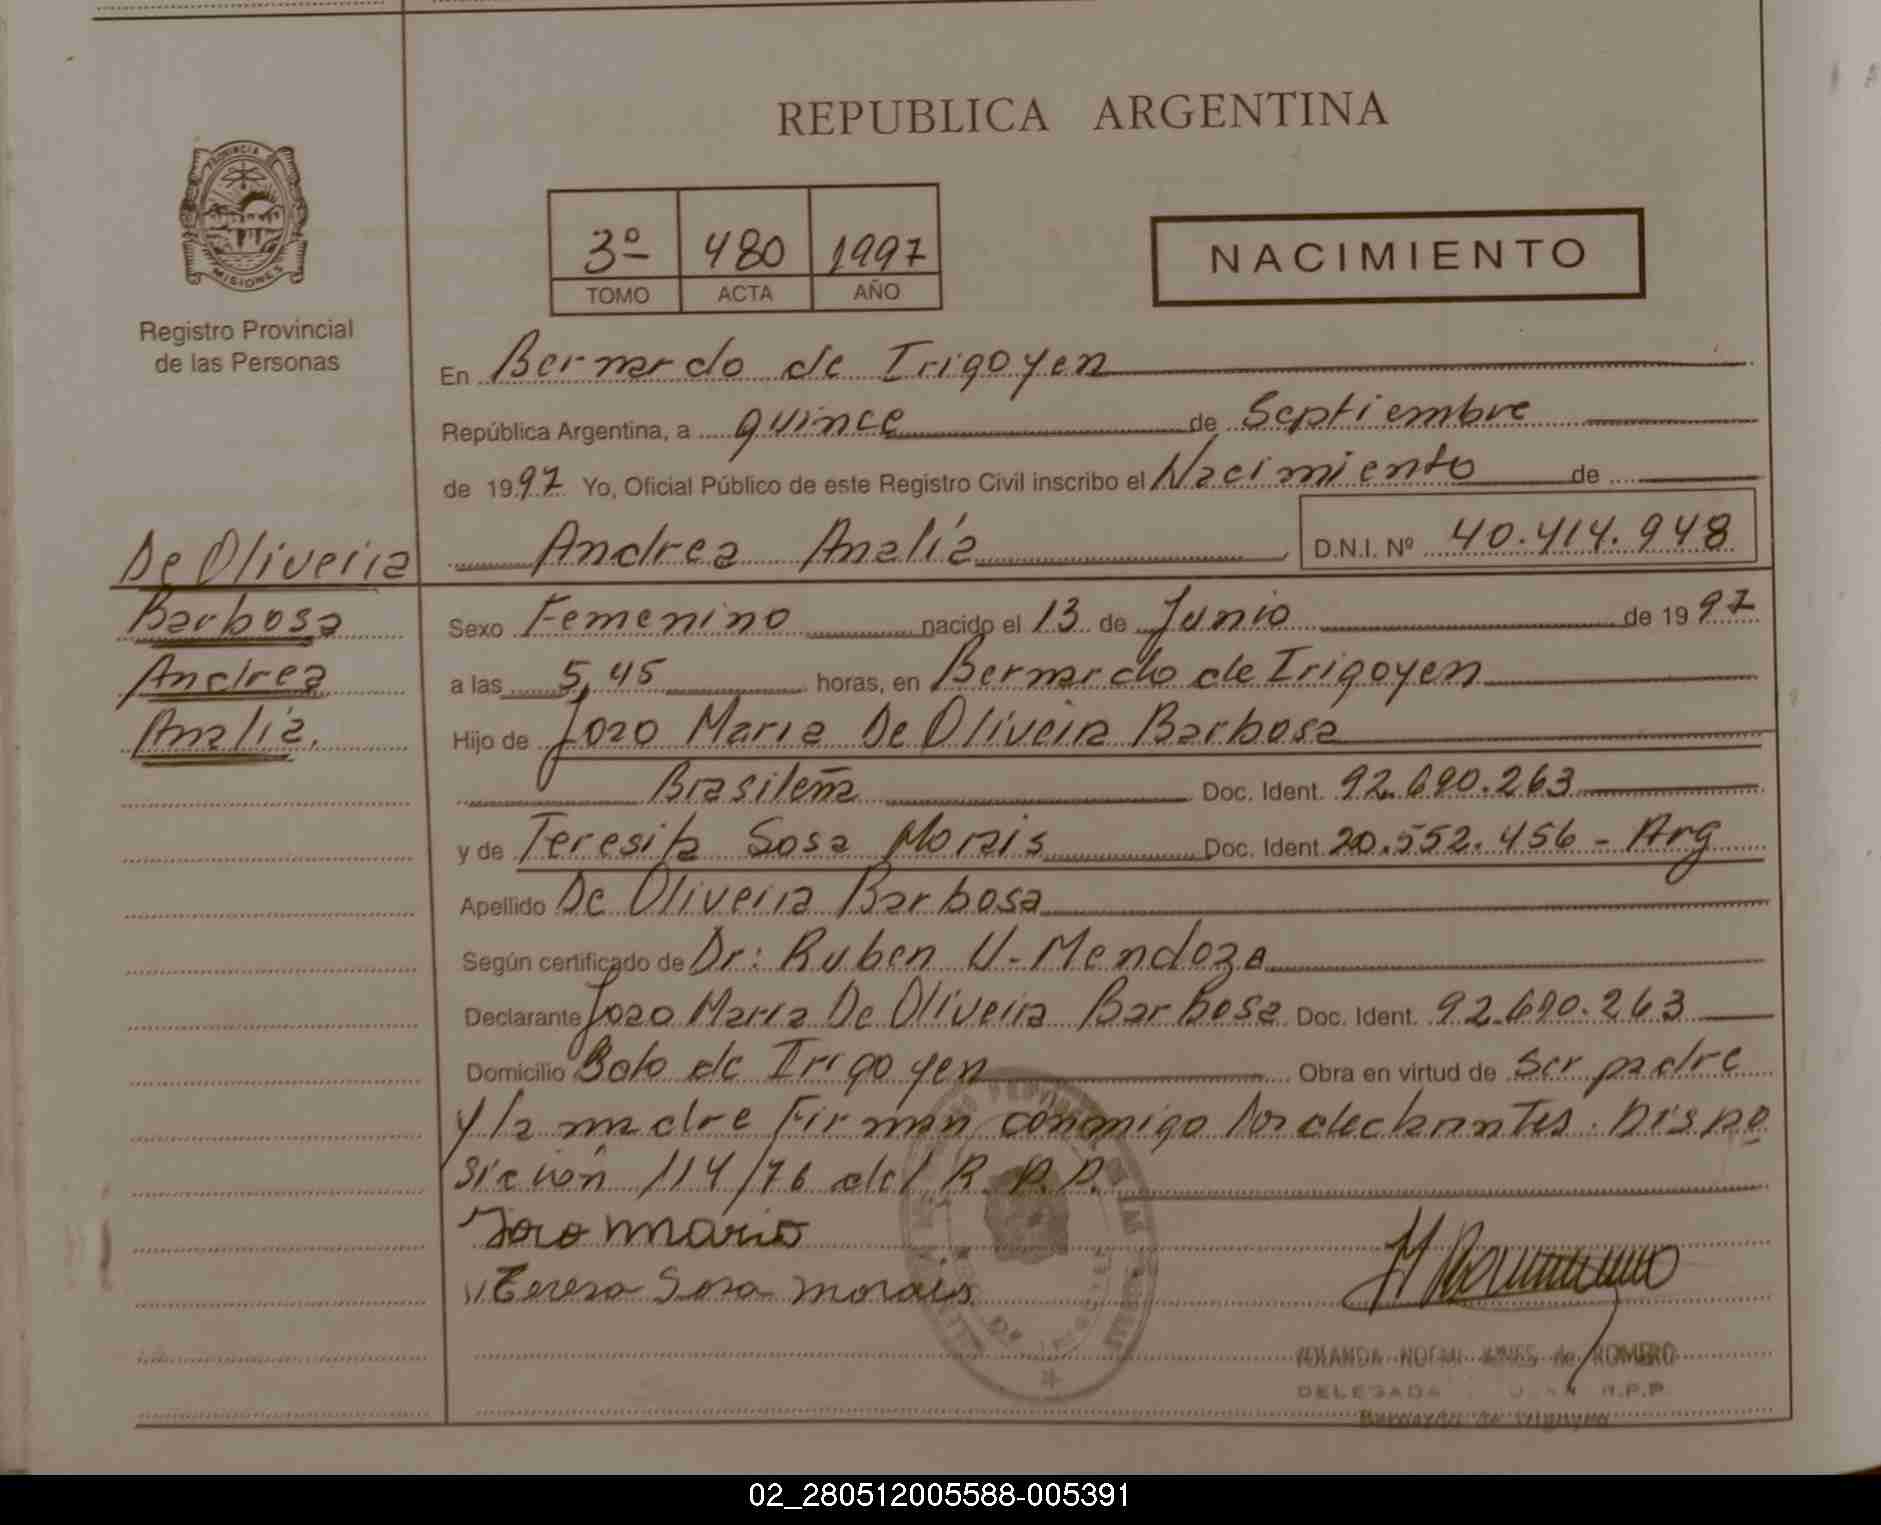 REPUBLICA ARGENTINA
PROVINCIA DE
MISIONES
Registro Provincial
de las Personas
3º 480 1997
TOMO ACTA AÑO
NACIMIENTO
En Bernardo de Irigoyen
República Argentina, a quince de Septiembre
de 1997 Yo, Oficial Público de este Registro Civil inscribo el Nacimiento de
Andrea Analía D.N.I. Nº 40.414.948
De Oliveira
Barbosa
Andrea
Analía.
Sexo Femenino nacido el 13 de Junio de 1997
a las 5,45 horas, en Bernardo de Irigoyen
Hijo de Joao Maria De Oliveira Barbosa
Brasileña Doc. Ident. 92.690.263
y de Teresita Sosa Morais Doc. Ident. 20.552.456 - Arg
Apellido De Oliveira Barbosa
Según certificado de Dr: Ruben U. Mendoza
Declarante Joao Maria De Oliveira Barbosa Doc. Ident. 92.690.263
Domicilio Bdo de Irigoyen Obra en virtud de ser padre
y la madre Firman conmigo los declarantes. Dispo
sición 114/76 del R.P.P.
Joao Maria
Teresa Sosa morais
YOLANDA NOEMI de ROMERO
DELEGADA R.P.P.
Bernardo de Irigoyen
02_280512005588-005391